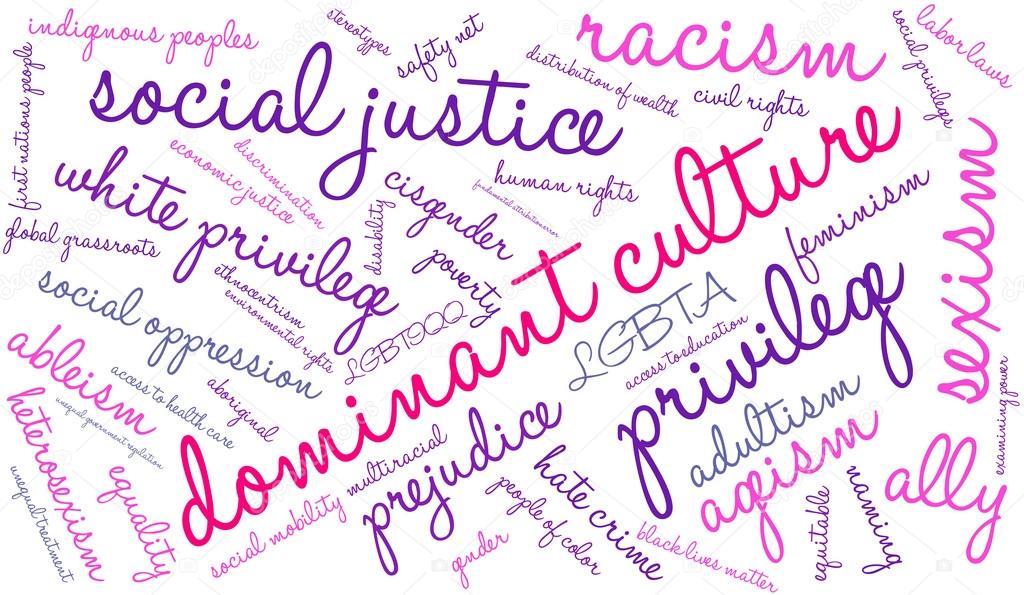 indigenous peoples
stereotypes
safety net
racism
labor laws
social privilege
first nations people
social justice
distribution of wealth
civil rights
dominant culture
sexism
white privilege
economic justice
discrimination
cisgender
human rights
fundamental attribution error
feminism
global grassroots
disability
poverty
ethnocentrism
environmental rights
LGBTQQ
LGBTA
access to education
privilege
social oppression
ableism
access to health care
aboriginal
unequal government regulation
heterosexism
unequal treatment
equality
social mobility
multiracial
prejudice
gender
people of color
hate crime
black lives matter
adultism
ageism
equitable
naming
ally
examining power